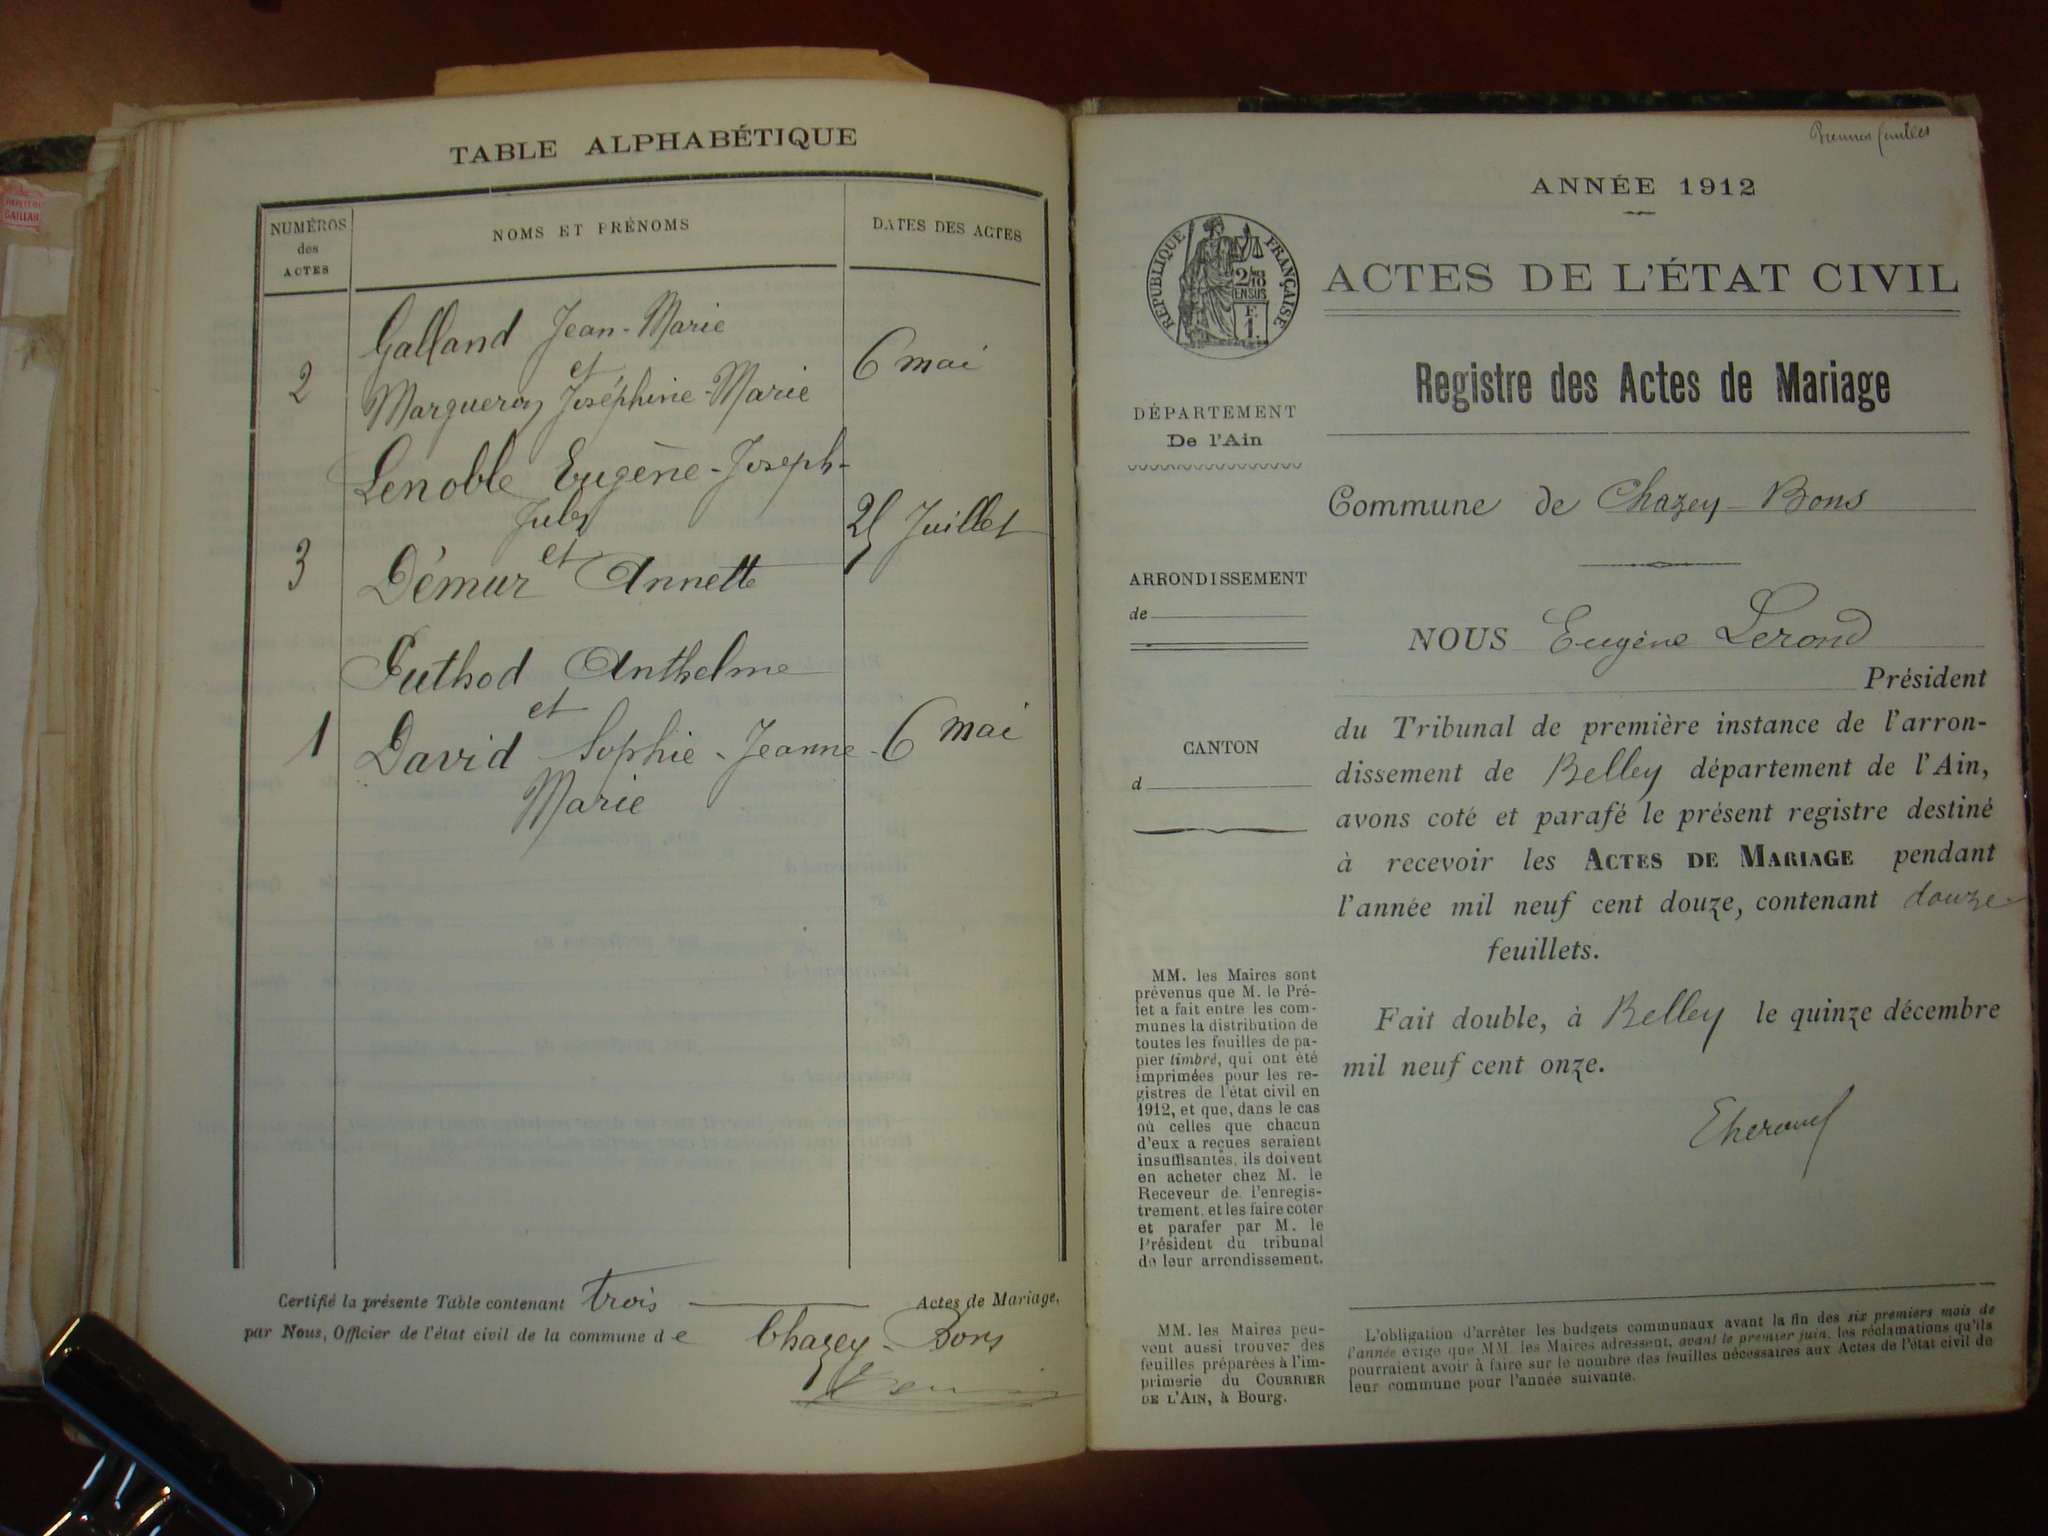 TABLE ALPHABÉTIQUE
NUMÉROS
des
ACTES
NOMS ET PRÉNOMS
DATES DES ACTES
Galland Jean-Marie
et
2
6 mai
Margueron Joséphine-Marie
Lenoble Eugène-Joseph-
Jules
25 Juillet
et
3
Démur Annette
Guthod Anthelme
et
1
David Sophie-Jeanne-
6 mai
Marie
Certifié la présente Table contenant trois Actes de Mariage,
par Nous, Officier de l'état civil de la commune de Chazey-Bons
ANNÉE 1912
RÉPUBLIQUE FRANÇAISE
ACTES DE L'ÉTAT CIVIL
Registre des Actes de Mariage
DÉPARTEMENT
De l'Ain
Commune de Chazey-Bons
ARRONDISSEMENT
de
NOUS Eugène Lerond
Président
CANTON
d
du Tribunal de première instance de l'arron-
dissement de Belley département de l'Ain,
avons coté et parafé le présent registre destiné
à recevoir les ACTES DE MARIAGE pendant
l'année mil neuf cent douze, contenant douze
feuillets.
Fait double, à Belley le quinze décembre
mil neuf cent onze.
MM. les Maires sont
prévenus que M. le Pré-
fet a fait entre les com-
munes la distribution de
toutes les feuilles de pa-
pier timbré, qui ont été
imprimées pour les re-
gistres de l'état civil en
1912, et que, dans le cas
où celles que chacun
d'eux a reçues seraient
insuffisantes, ils doivent
en acheter chez M. le
Receveur de l'enregis-
trement, et les faire coter
et parafer par M. le
Président du tribunal
de leur arrondissement.
MM. les Maires peu-
vent aussi trouver des
feuilles préparées à l'im-
primerie du COURRIER
DE L'AIN, à Bourg.
L'obligation d'arrêter les budgets communaux avant la fin des six premiers mois de
l'année exige que MM. les Maires adressent, avant le premier juin, les réclamations qu'ils
pourraient avoir à faire sur le nombre des feuilles nécessaires aux Actes de l'état civil de
leur commune pour l'année suivante.